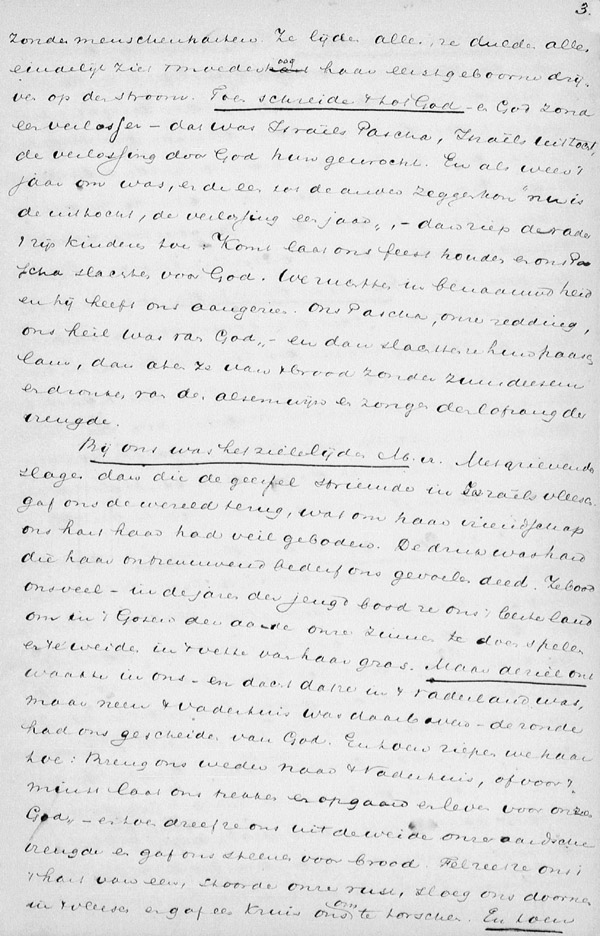 3.
zonder menschenharten. Ze lijden alles, ze dulden alles
eindelijk ziet moeder oog haar eerstgeboorne drij
ven op den stroom. Toen schreide 't tot God – en God zond
een verlosser – dat was Israëls Pascha, Israëls uittocht,
de verlossing door God hun gewrocht. En als weer 't
jaar om was, en de een tot de ander zeggen kon "nu is
de uittocht, de verlossing een jaar„ – dan riep de vader
zijn kinderen toe: Komt laat ons feest houden en ons Pa
scha slachten voor God. We in benauwdheid
en hij heeft ons aangezien. Ons Pascha, onze redding,
ons heil was van God„ – en dan slachtten hun paasch
lam, dan aten ze van 't brood zonder zuurdeesem
en dronken van den alsemwijn en zongen den lofzang der
vreugde.
Bij ons was het zielelijden M. v. Met grievende
slagen dan die de geesel striemde in Israëls vleesch
gaf ons de wereld terug, wat om haar vriendschap
ons hart haar had veil geboden. De druk was hard
die haar ontzenuwend bederf ons gevoelen deed. Ze bood
ons veel – in de jaren der jeugd bood ze ons 't beste land
om in 't Gosen der aarde onze zinnen te doen spelen
en te weiden in 't vette van haar gras. Maar de ziel ont
waakte in ons – en dacht dat ze in 't vaderland was,
maar neen 't vaderhuis was daarboven – de zonde
had ons gescheiden van God. En toen riepen we haar
toe: Breng ons weder naar 't Vaderhuis, of voor 't
minst laat ons trekken en opgaan en leven voor onzen
God„ – en toen dreef ze ons uit de weide onzer aardsche
vreugde en gaf ons steenen voor brood. Fel reet ze ons
't hart van een, stoorde onze rust, sloeg ons doornen
in 't vleesch en gaf een kruis ons om te torschen. En toen